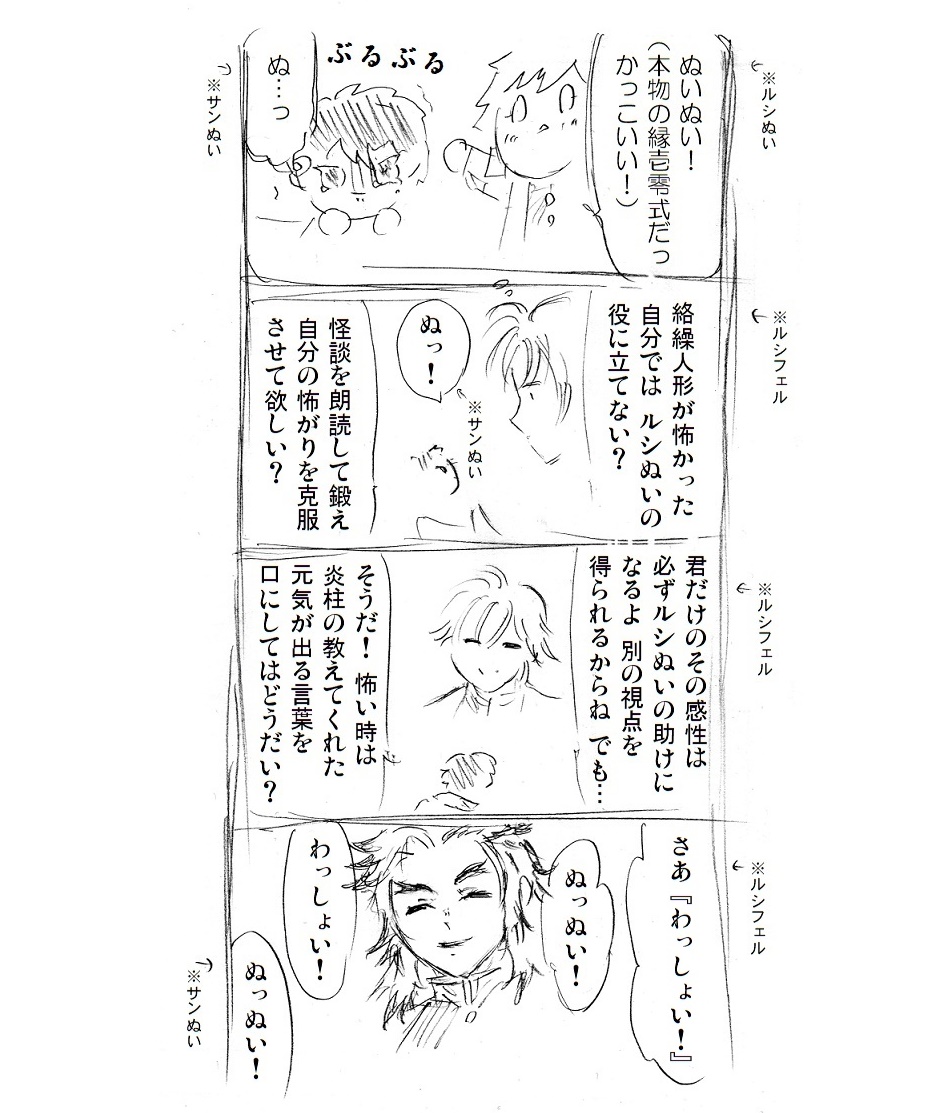 ※ルシぬい
ぬいぬい!
(本物の縁壱零式だっ
かっこいい!)
ぶるぶる
ぬ…っ
※サンぬい
※ルシフェル
絡繰人形が怖かった
自分では ルシぬいの
役に立てない?
ぬっ!
※サンぬい
怪談を朗読して鍛え
自分の怖がりを克服
させて欲しい?
※ルシフェル
君だけのその感性は
必ずルシぬいの助けに
なるよ 別の視点を
得られるからね でも…
そうだ! 怖い時は
炎柱の教えてくれた
元気が出る言葉を
口にしてはどうだい?
※ルシフェル
さあ『わっしょい!』
ぬっぬい!
わっしょい!
ぬっぬい!
※サンぬい